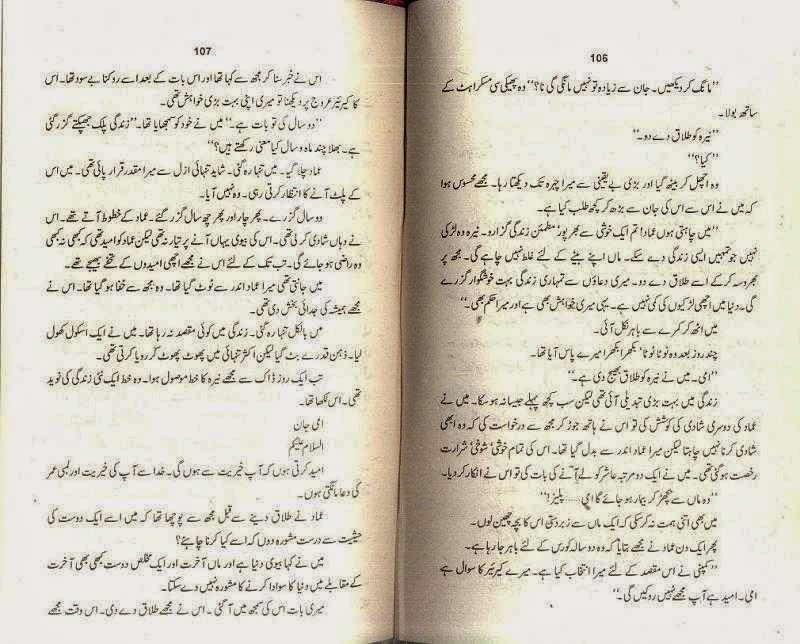 106
’’مانگ کر دیکھیں۔ جان سے زیادہ تو نہیں مانگی گی نا؟‘‘ وہ پھیکی سی مسکراہٹ کے
ساتھ بولا۔
’’نیرہ کو طلاق دے دو۔‘‘
’’کیا؟‘‘
وہ اچھل کر بیٹھ گیا اور بڑی بے یقینی سے میرا چہرہ تک دیکھتا رہا۔ مجھے محسوس ہوا
کہ میں نے اس سے اس کی جان سے بڑھ کر کچھ طلب کیا ہے۔
’’میں چاہتی ہوں عماد! تم ایک خوشی سے بھرپور مطمئن زندگی گزارو۔ نیرہ وہ لڑکی
نہیں جو تمہیں ایسی زندگی دے سکے۔ ماں اپنے بیٹے کے لئے غلط نہیں چاہے گی۔ مجھ پر
بھروسہ کر کے اسے طلاق دے دو۔ میری دعاؤں سے تمہاری زندگی بہت خوشگوار گزرے
گی۔ دنیا میں اچھی لڑکیوں کی کمی نہیں ہے۔ یہی میری خواہش بھی ہے اور میرا حکم بھی۔‘‘
میں اٹھ کر کمرے سے باہر نکل آئی۔
چند روز بعد وہ ٹوٹا ٹوٹا‘ بکھرا بکھرا میرے پاس آیا تھا۔
’’امی۔ میں نے نیرہ کو طلاق بھیج دی ہے۔‘‘
زندگی میں بہت بڑی تبدیلی آئی تھی لیکن سب کچھ پہلے جیسا نہ ہو سکا۔ میں نے
عماد کی دوسری شادی کی کوشش کی تو اس نے ہاتھ جوڑ کر مجھ سے درخواست کی کہ وہ ابھی
شادی کرنا نہیں چاہتا لیکن میرا عماد اندر سے بدل گیا تھا۔ اس کی تمام خوشی‘ شوخی‘ شرارت
رخصت ہو گئی تھی۔ میں نے ایک دو مرتبہ عاشر کو لے آنے کی بات کی تو اس نے انکار کر دیا۔
’’وہ ماں سے بچھڑ کر بیمار ہو جائے گا امی....... پلیز!‘‘
میں بھی اتنی ہمت نہ کر سکی کہ ایک ماں سے زبردستی اس کا بچہ چھین لوں۔
پھر ایک دن عماد نے مجھے بتایا کہ وہ دو سالہ کورس کے لئے باہر جا رہا ہے۔
’’کمپنی نے اس مقصد کے لئے میرا انتخاب کیا ہے۔ میرے کیریئر کا سوال ہے
امی۔ امید ہے آپ مجھے نہیں روکیں گی۔‘‘
107
اس نے خبر سنا کر مجھ سے کہا تھا اور اس بات کے بعد اسے روکنا بے سود تھا۔ اس
کا کیریئر عروج پر دیکھنا تو میری اپنی بہت بڑی خواہش تھی۔
’’دو سال کی تو بات ہے۔‘‘ میں نے خود کو سمجھایا تھا۔ ’’زندگی پلک جھپکتے گزر گئی
ہے۔ بھلا چند ماہ و سال کیا معنی رکھتے ہیں؟‘‘
عماد چلا گیا۔ میں تنہا رہ گئی۔ شاید تنہائی ازل سے میرا مقدر قرار پائی تھی۔ میں اس
کے پلٹ آنے کا انتظار کرتی رہی۔ وہ نہیں آیا۔
دو سال گزرے۔ پھر چار اور پھر چھ سال گزر گئے۔ عماد کے خطوط آتے تھے۔ اس
نے وہاں شادی کر لی تھی۔ اس کی بیوی یہاں آنے پر تیار نہ تھی لیکن عماد کو امید تھی کہ کبھی نہ کبھی
وہ راضی ہو جائے گی۔ تب تک کے لئے اس نے مجھے اچھی امیدوں کے تحفے بھیجے تھے۔
میں جانتی تھی میرا عماد اندر سے ٹوٹ گیا تھا۔ وہ مجھ سے خفا ہو گیا تھا۔ اس نے
مجھے ہمیشہ کی جدائی بخش دی تھی۔
میں بالکل تنہا رہ گئی۔ زندگی میں کوئی مقصد نہ رہا تھا۔ میں نے ایک اسکول کھول
لیا۔ ذہن قدرے بٹ گیا لیکن اکثر تنہائی میں پھوٹ پھوٹ کر رو دیا کرتی تھی۔
تب ایک روز ڈاک سے مجھے نیرہ کا خط موصول ہوا۔ وہ خط ایک نئی زندگی کی نوید
تھی۔ اس لکھا تھا۔
امی جان
السلام علیکم
امید کرتی ہوں کہ آپ خیریت سے ہوں گی۔ خدا سے آپ کی خیریت اور لمبی عمر
کی دعا مانگتی ہوں۔
عماد نے طلاق دینے سے قبل مجھ سے پوچھا تھا کہ میں اسے ایک دوست کی
حیثیت سے درست مشورہ دوں کہ اسے کیا کرنا چاہئے؟
میں نے کہا بیوی دنیا ہے اور ماں آخرت اور ایک مخلص دوست کبھی بھی آخرت
کے مقابلے میں دنیا کا سودا کرنے کا مشورہ نہیں دے سکتا۔
میری بات اس کی سمجھ میں آ گئی۔ اس نے مجھے طلاق دے دی۔ اس وقت مجھے